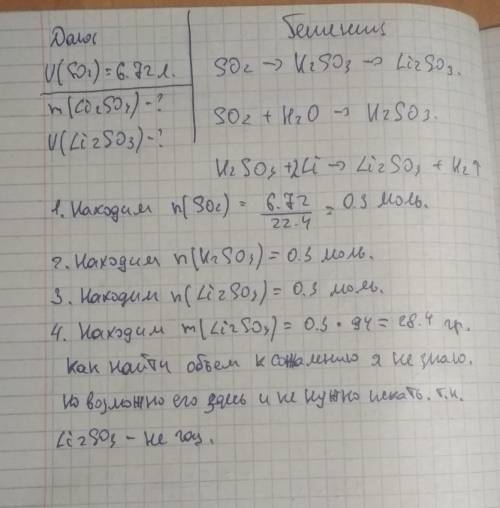 Дано:
Решение
V(SO2) = 6.72 л.
n(Li2SO3) - ?
V(Li2SO3) - ?
SO2 → H2SO3 → Li2SO3.
SO2 + H2O → H2SO3.
H2SO3 + 2Li → Li2SO3 + H2↑
1. Находим n(SO2) = 6.72 / 22.4 = 0.3 моль.
2. Находим n(H2SO3) = 0.3 моль.
3. Находим n(Li2SO3) = 0.3 моль.
4. Находим m(Li2SO3) = 0.3 • 94 = 28.4 гр.
Как найти объем к сожалению я не знаю.
Но возможно его здесь и не нужно искать. т.к.
Li2SO3 - не газ.